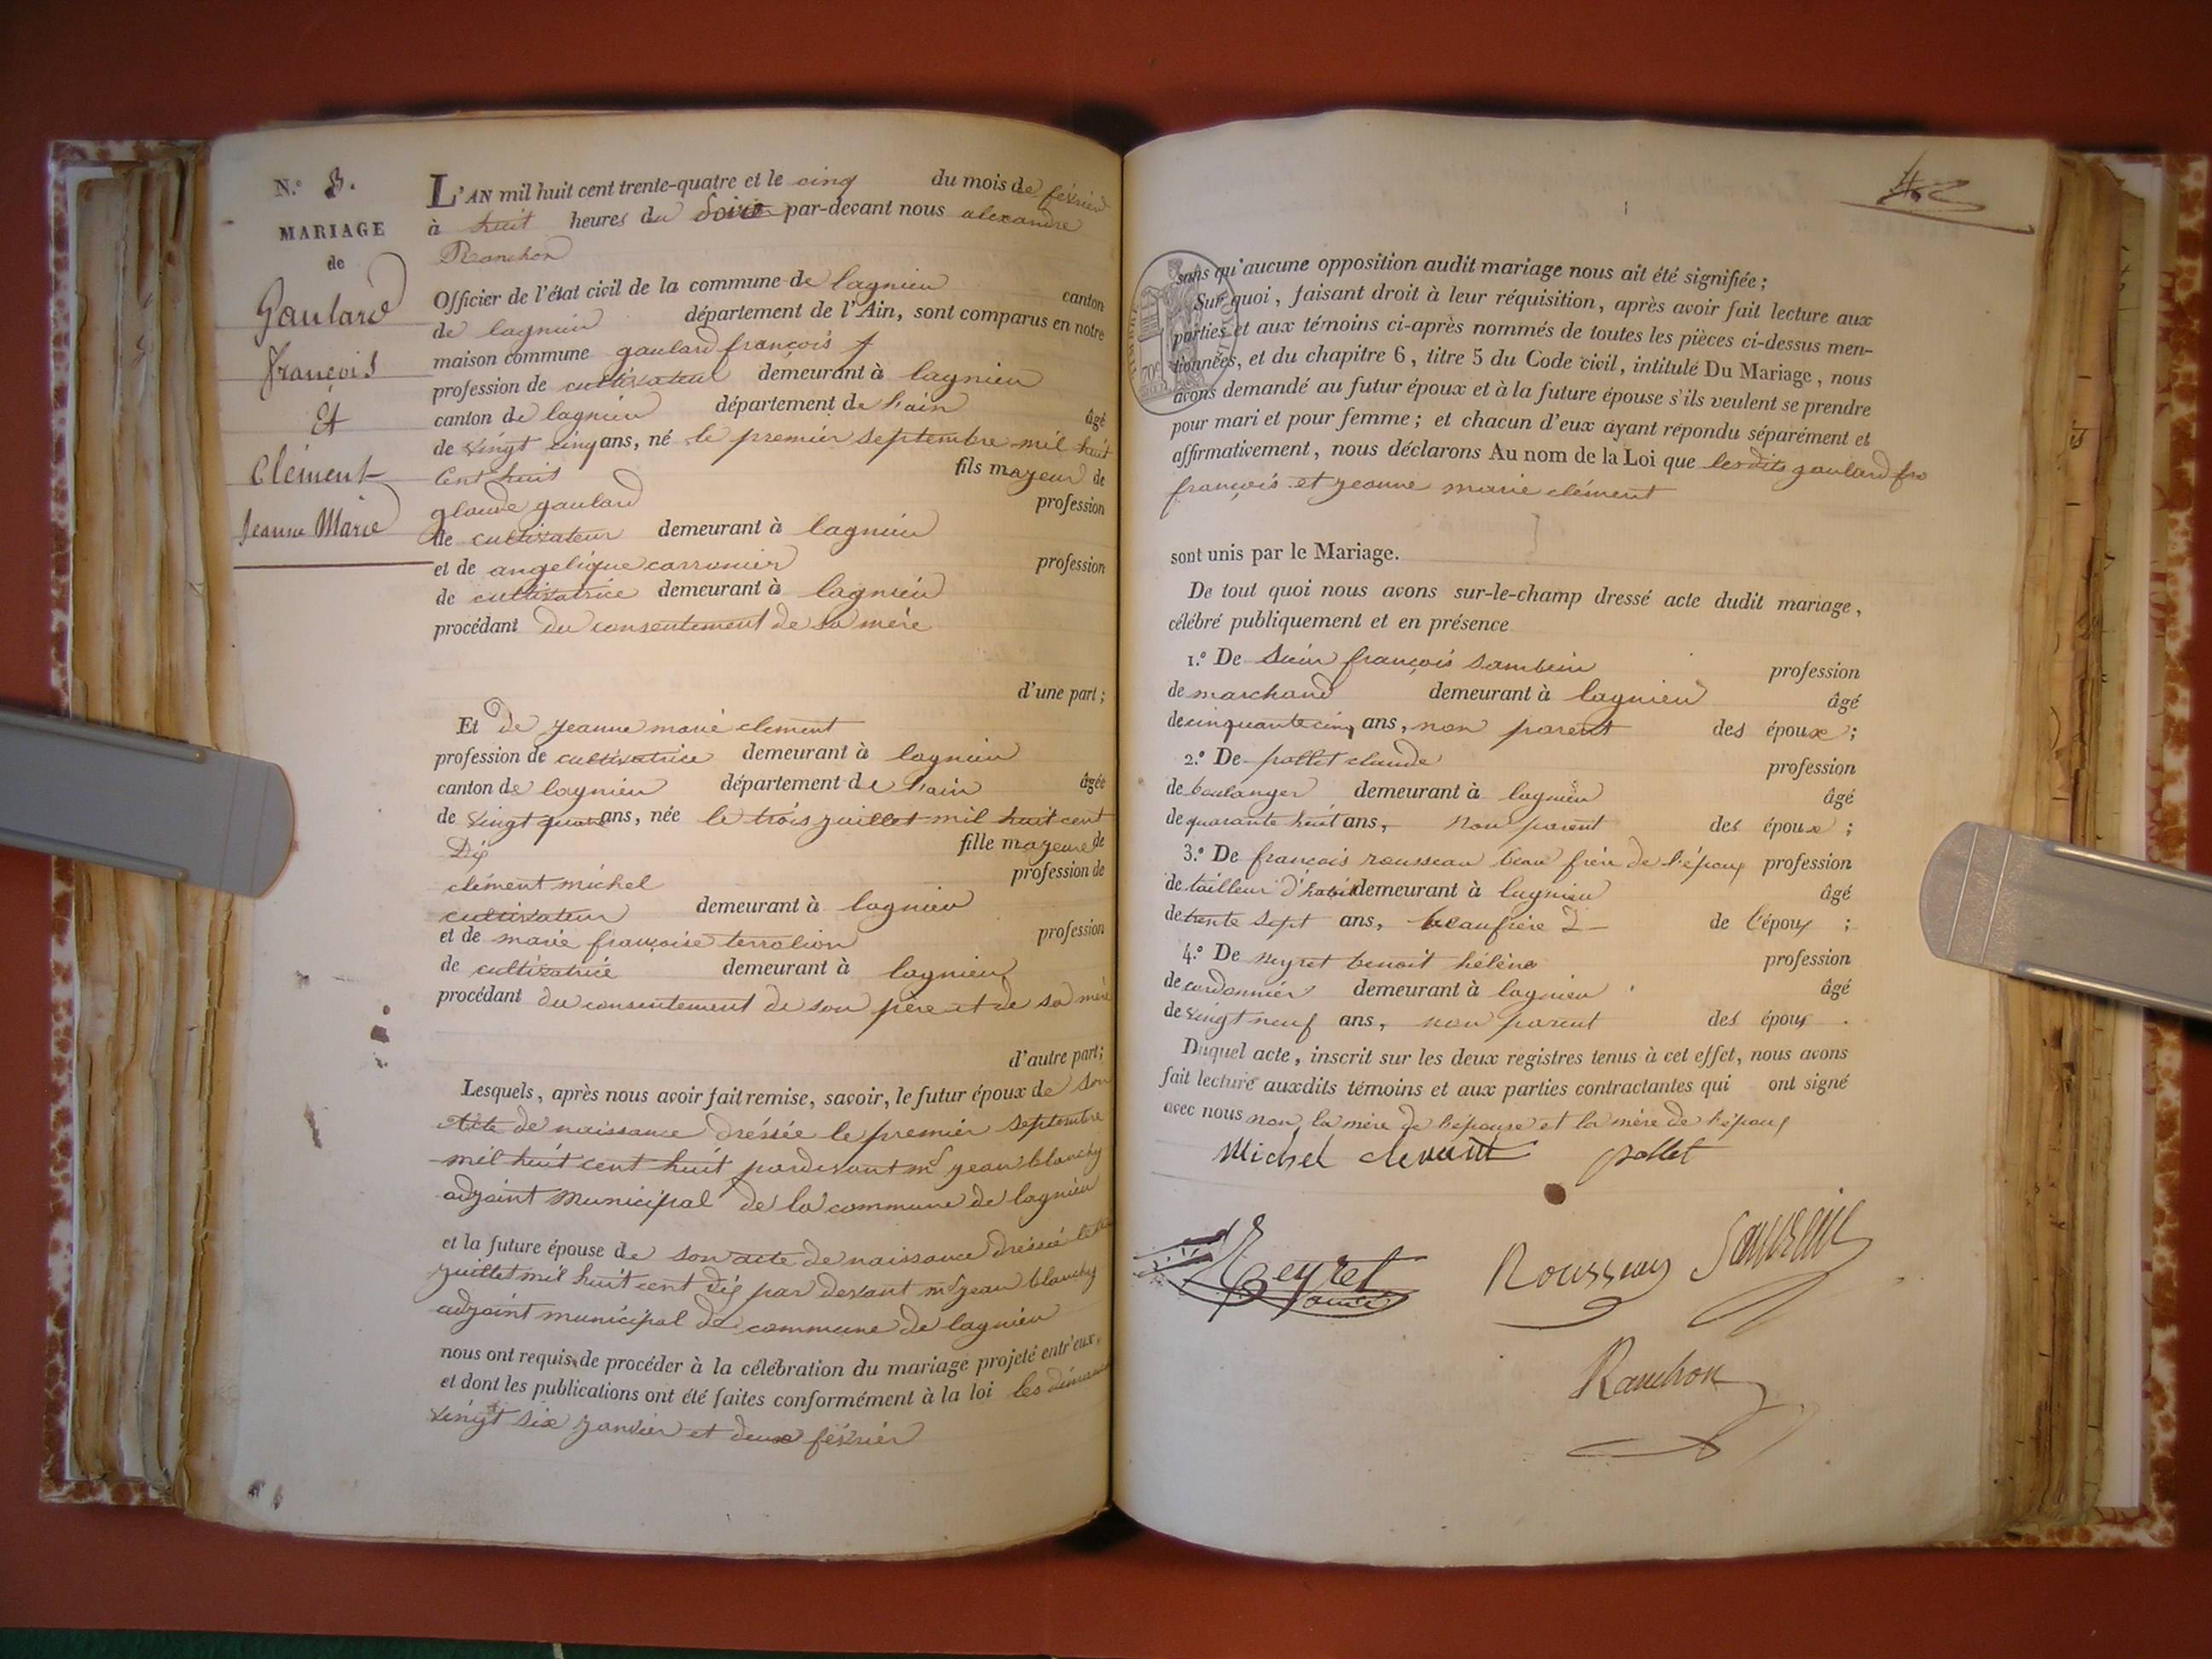 N.° 3.
MARIAGE
de
Gaulard
François
Et
Clément
Jeanne Marie
L'AN mil huit cent trente-quatre et le cinq du mois de février
à huit heures du Soir par-devant nous alexandre
Ranchon
Officier de l'état civil de la commune de lagnieu canton
de lagnieu département de l'Ain, sont comparus en notre
maison commune gaulard françois
profession de cultivateur demeurant à lagnieu
canton de lagnieu département de l'ain âgé
de vingt cinq ans, né le premier septembre mil huit
Cent huit fils mayeur de
glaude gaulard profession
de cultivateur demeurant à lagnieu
et de angelique carronier profession
de cultivatrice demeurant à lagnieu
procédant du consentement de sa mère
d'une part ;
Et de jeanne marie clement
profession de cultivatrice demeurant à lagnieu
canton de lagnieu département de l'ain âgée
de vingt quatre ans, née le trois juillet mil huit cent
Dix fille mayeure de
clément michel profession de
cultivateur demeurant à lagnieu
et de marie françoise terralion profession
de cultivatrice demeurant à lagnieu
procédant du consentement de son père et de sa mère
d'autre part ;
Lesquels, après nous avoir fait remise, savoir, le futur époux de son
Acte de naissance dréssée le premier septembre
mil huit cent huit pardevant mr jean blanchy
adjoint municipal de la commune de lagnieu
et la future épouse de son acte de naissance dréssé le
juillet mil huit cent dix par devant mr jean blanchy
adjoint municipal de commune de lagnieu
nous ont requis de procéder à la célébration du mariage projeté entr'eux,
et dont les publications ont été faites conformément à la loi les dimanche
vingt six janvier et deux février
sans qu'aucune opposition audit mariage nous ait été signifiée ;
Sur quoi, faisant droit à leur réquisition, après avoir fait lecture aux
parties et aux témoins ci-après nommés de toutes les pièces ci-dessus men-
tionnées, et du chapitre 6, titre 5 du Code civil, intitulé Du Mariage, nous
avons demandé au futur époux et à la future épouse s'ils veulent se prendre
pour mari et pour femme ; et chacun d'eux ayant répondu séparément et
affirmativement, nous déclarons Au nom de la Loi que lesdits gaulard fra
françois et jeanne marie clément
sont unis par le Mariage.
De tout quoi nous avons sur-le-champ dressé acte dudit mariage,
célébré publiquement et en présence
1.° De Sieur françois sambein profession
de marchand demeurant à lagnieu âgé
de cinquante cinq ans, non parent des époux ;
2.° De pollet claude profession
de boulanger demeurant à lagnieu âgé
de quarante huit ans, non parent des époux ;
3.° De francois rousseau beau frère de l'époux profession
de tailleur d'habit demeurant à lagnieu âgé
de trente sept ans, beaufrère de l'époux ;
4.° De neyret benoit hélène profession
de cordonnier demeurant à lagnieu âgé
de vingt neuf ans, non parent des époux .
Duquel acte, inscrit sur les deux registres tenus à cet effet, nous avons
fait lecture auxdits témoins et aux parties contractantes qui ont signé
avec nous non la mère de l'épouse et la mère de l'époux
Michel clement pollet
Neyret Rousseau
Ranchon